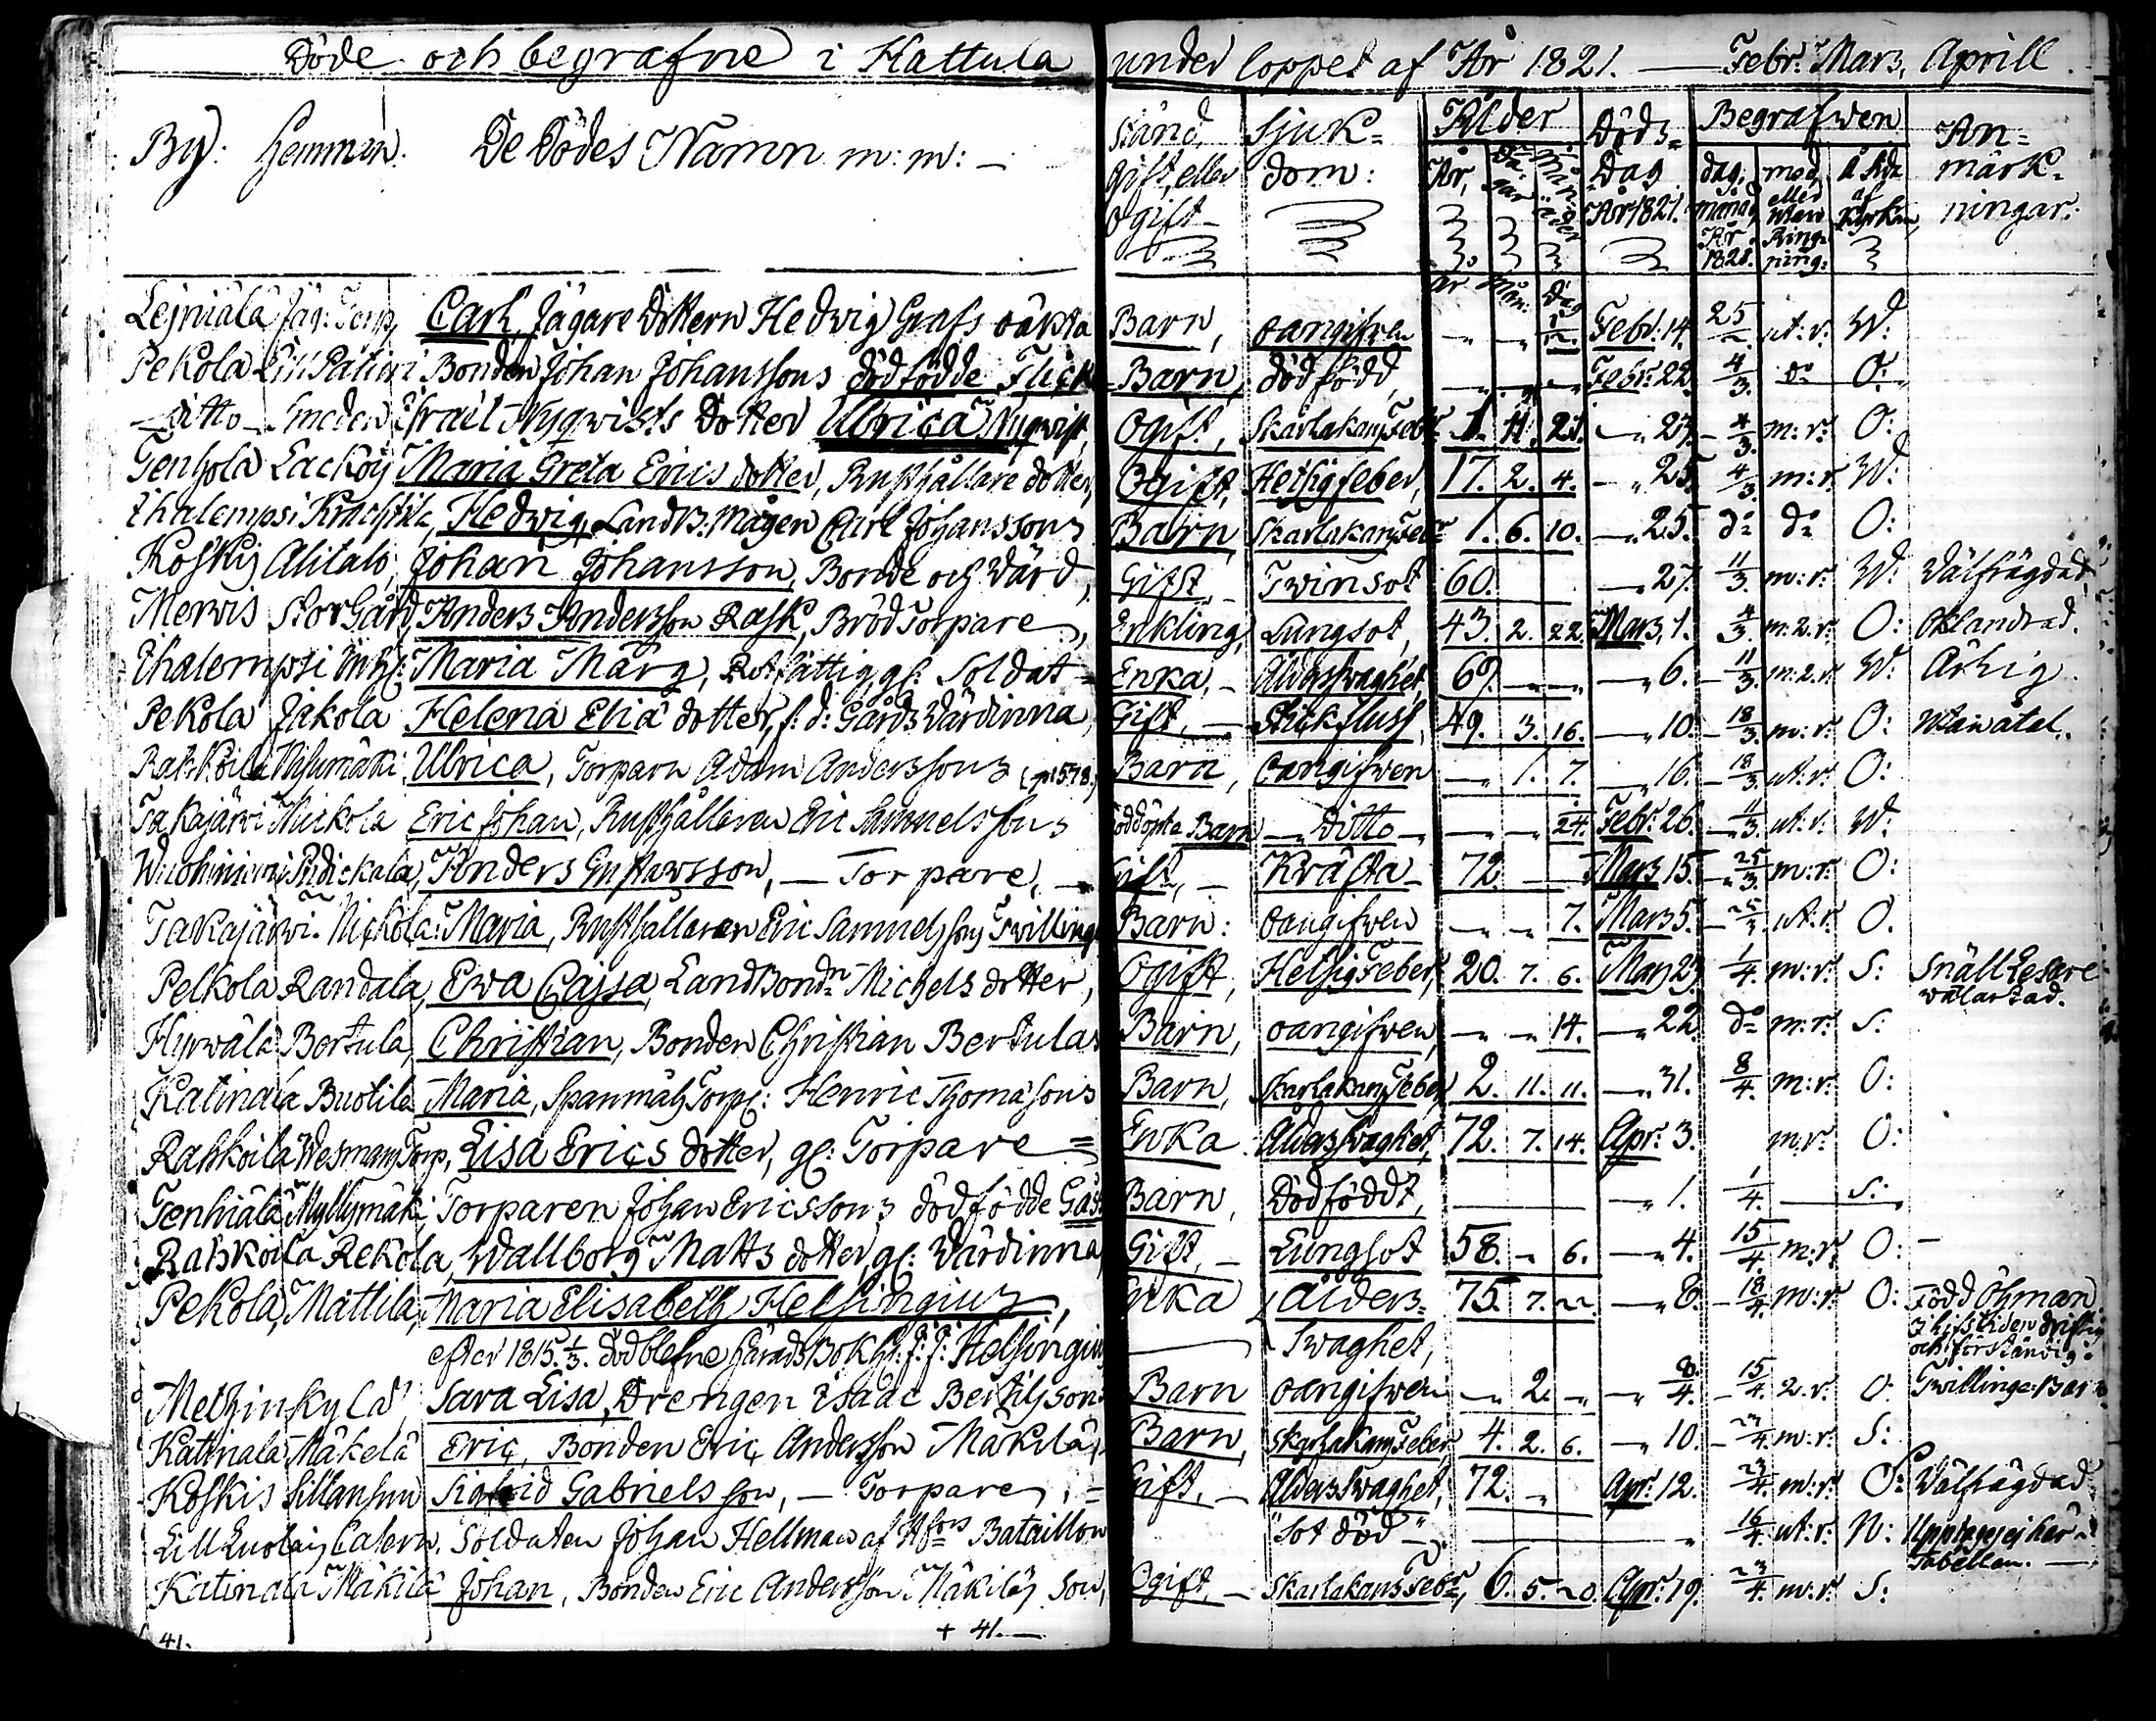 Döde och begrafne i Hattula under loppet af År 1821. — Febr: Mars, Aprill.
By: Hemman. De Dödes Namn m: m: — Stånd, Gift, eller Ogift Sjuk= dom: Ålder År, Da= gar Måna= der Döds= Dag År 1821. Begrafwen dag, månad År 1821. med eller utan Ring= ning: å Sida af Kyrkan, An= märk= ningar.
år Mån: Dag
Lejniälä Jäg: Torp, Carl, Jägare Dottern Hedwig Grafs oäkta Barn, oangifwen „ „ Febr: 14. 25 ut: r: W:
Pekola Bonden Johan Johanssons dödfödde Flick= Barn, dödfödd, Febr: 22. 4/3. do O:
ditto Smeden Israel Nyqwists Dotter Ulrica Nyqwist, Ogift, Skarlakans Feb: 1. 11. 21. „ 23. 4/3. m: r: O:
Tenhola Lackois Maria Greta Erics dotter, Rusthållare dotter, Ogift, Hetsig feber, 17. 2. 4. „ 25. 4/3. m: r: W:
Ihalempsi Hedwig, Landb: mågen Carl Johanssons Barn Skarlakans Feb: 1. 6. 10. „ 25. do do O:
Koskis Alitalo, Johan Johansson, Bonde och Wärd, Gift, Twinsot 60. „ 27. 11/3. m: r: W: Wälfrägdad
Merwis StorGård, Anders Andersson Rask, Bröd Torpare, Enkling, Lungsot, 43. 2. 22. Mars, 1. 4/3. m: 2. r: O: Oklandrad.
Ihalempsi Maria Märg, Rotfattig, gl: Soldat= Enka, Ålders swaghet, 69. „ 6. 11/3. m: 2. r: W: Ärlig.
Pekola Jakola Helena Elia dotter, f: d: Gårds Wärdinna, Gift, — Stickfluss, 49. 3. 16. „ 10. 18/3. m: r: O: Utan åtal.
Rahkoila Ulrica, Torparn Adam Anderssons (p: 578.) Barn, Oangifwen „ 1. 7. „ 16. 18/3. ut: r: O:
Takajärwi Nickola Eric Johan, Rusthållaren Eric Samuelssons Nöddöpta Barn „ Ditto „ 24. Febr: 26. 11/3. ut: r: W:
Anders Gustawsson, — Torpare, — Gift, — Kräfta 72. Mars 15. 25/3. m: r: O:
Takajärwi Nickola: Maria, Rusthållaren Eric Samuelssons Twilling Barn: oangifwen „ „ 7. Mars 5. 25/3. ut: r: O.
Pelkola Randala, Ewa Cajsa, LandBondn Michels dotter, Ogift, Hetsig Feber, 20. 7. 6. Mars 23. 1/4. m: r: S: Snäll Lesare wälartad.
Hyrwälä Bertula, Christian, Bonden Christian Bertulas Barn, oangifwen, „ „ 14. „ 22. do m: r: S:
Katinala Buotila Maria, Spanmåls Torp: Henric Thomasons Barn, Skarlakans Feber, 2. 11. 11. „ 31. 8/4. m: r: O:
Rahkoila Wesmans Torp, Lisa Erics dotter, gl: Torpare= Enka Ålders swaghet, 72. 7. 14. Apr: 3. m: r: O:
Tenhiälä Myllymäki, Torparen Johan Ericssons dödfödde Barn, Dödföddt, „ 1. 1/4. S:
Rahkoila Rekola, Wallborg Matts dotter, gl: Wärdinna, Gift, — Lungsot 58. „ 6. „ 4. 15/4. m: r: O: —
Pekola, Mattila, Maria Elisabeth Helsingius, Enka Ålders= 75. 7. 22. „ 8. 18/4. m: r: O: Född Öhman
efter 1815. 1/3. dödblefne Härads Bokh: J: J: Helsingius Swaghet, I lifstiden driftig och förståndig.
Methinkylä, Sara Lisa, Drengen Isaac Bertilsons Barn oangifwen „ 2. „ 8/4. 15/4. 2. r: O. Twillinge Barn
Katinala Mäkelä Eric, Bonden Eric Andersson Mäkilä, Barn, Skarlakans Feber, 4. 2. 6. „ 10. 23/4. m: r: S:
Koskis Sillansuu Sigfrid Gabrielsson, — Torpare, = Gift, — Ålders Swaghet, 72. „ Apr: 12. 23/4. m: r: O: Wälfrägdad
Soldaten Johan Hellman af Bataillon "Sot död" 16/4. ut: r: N: Upptages ej här i Tabellen. —
Katinala Mäkilä Johan, Bonden Eric Andersson Mäkiläs Son, Ogift, — Skarlakans Feb:, 6. 5. 20. Apr: 19. 23/4. m: r: S:
41. + 41. —